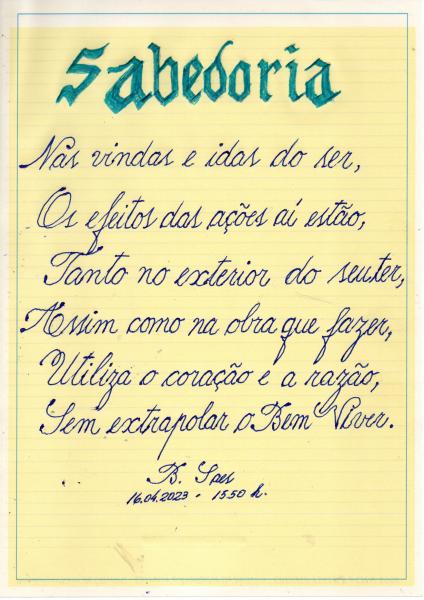 Sabedoria
Nas vindas e idas do ser,
Os efeitos das ações aí estão,
Tanto no exterior do seu ter,
Assim como na obra que fazer,
Utiliza o coração e a razão,
Sem extrapolar o Bem Viver.
B.
16.04.2023 - 15.50 h.